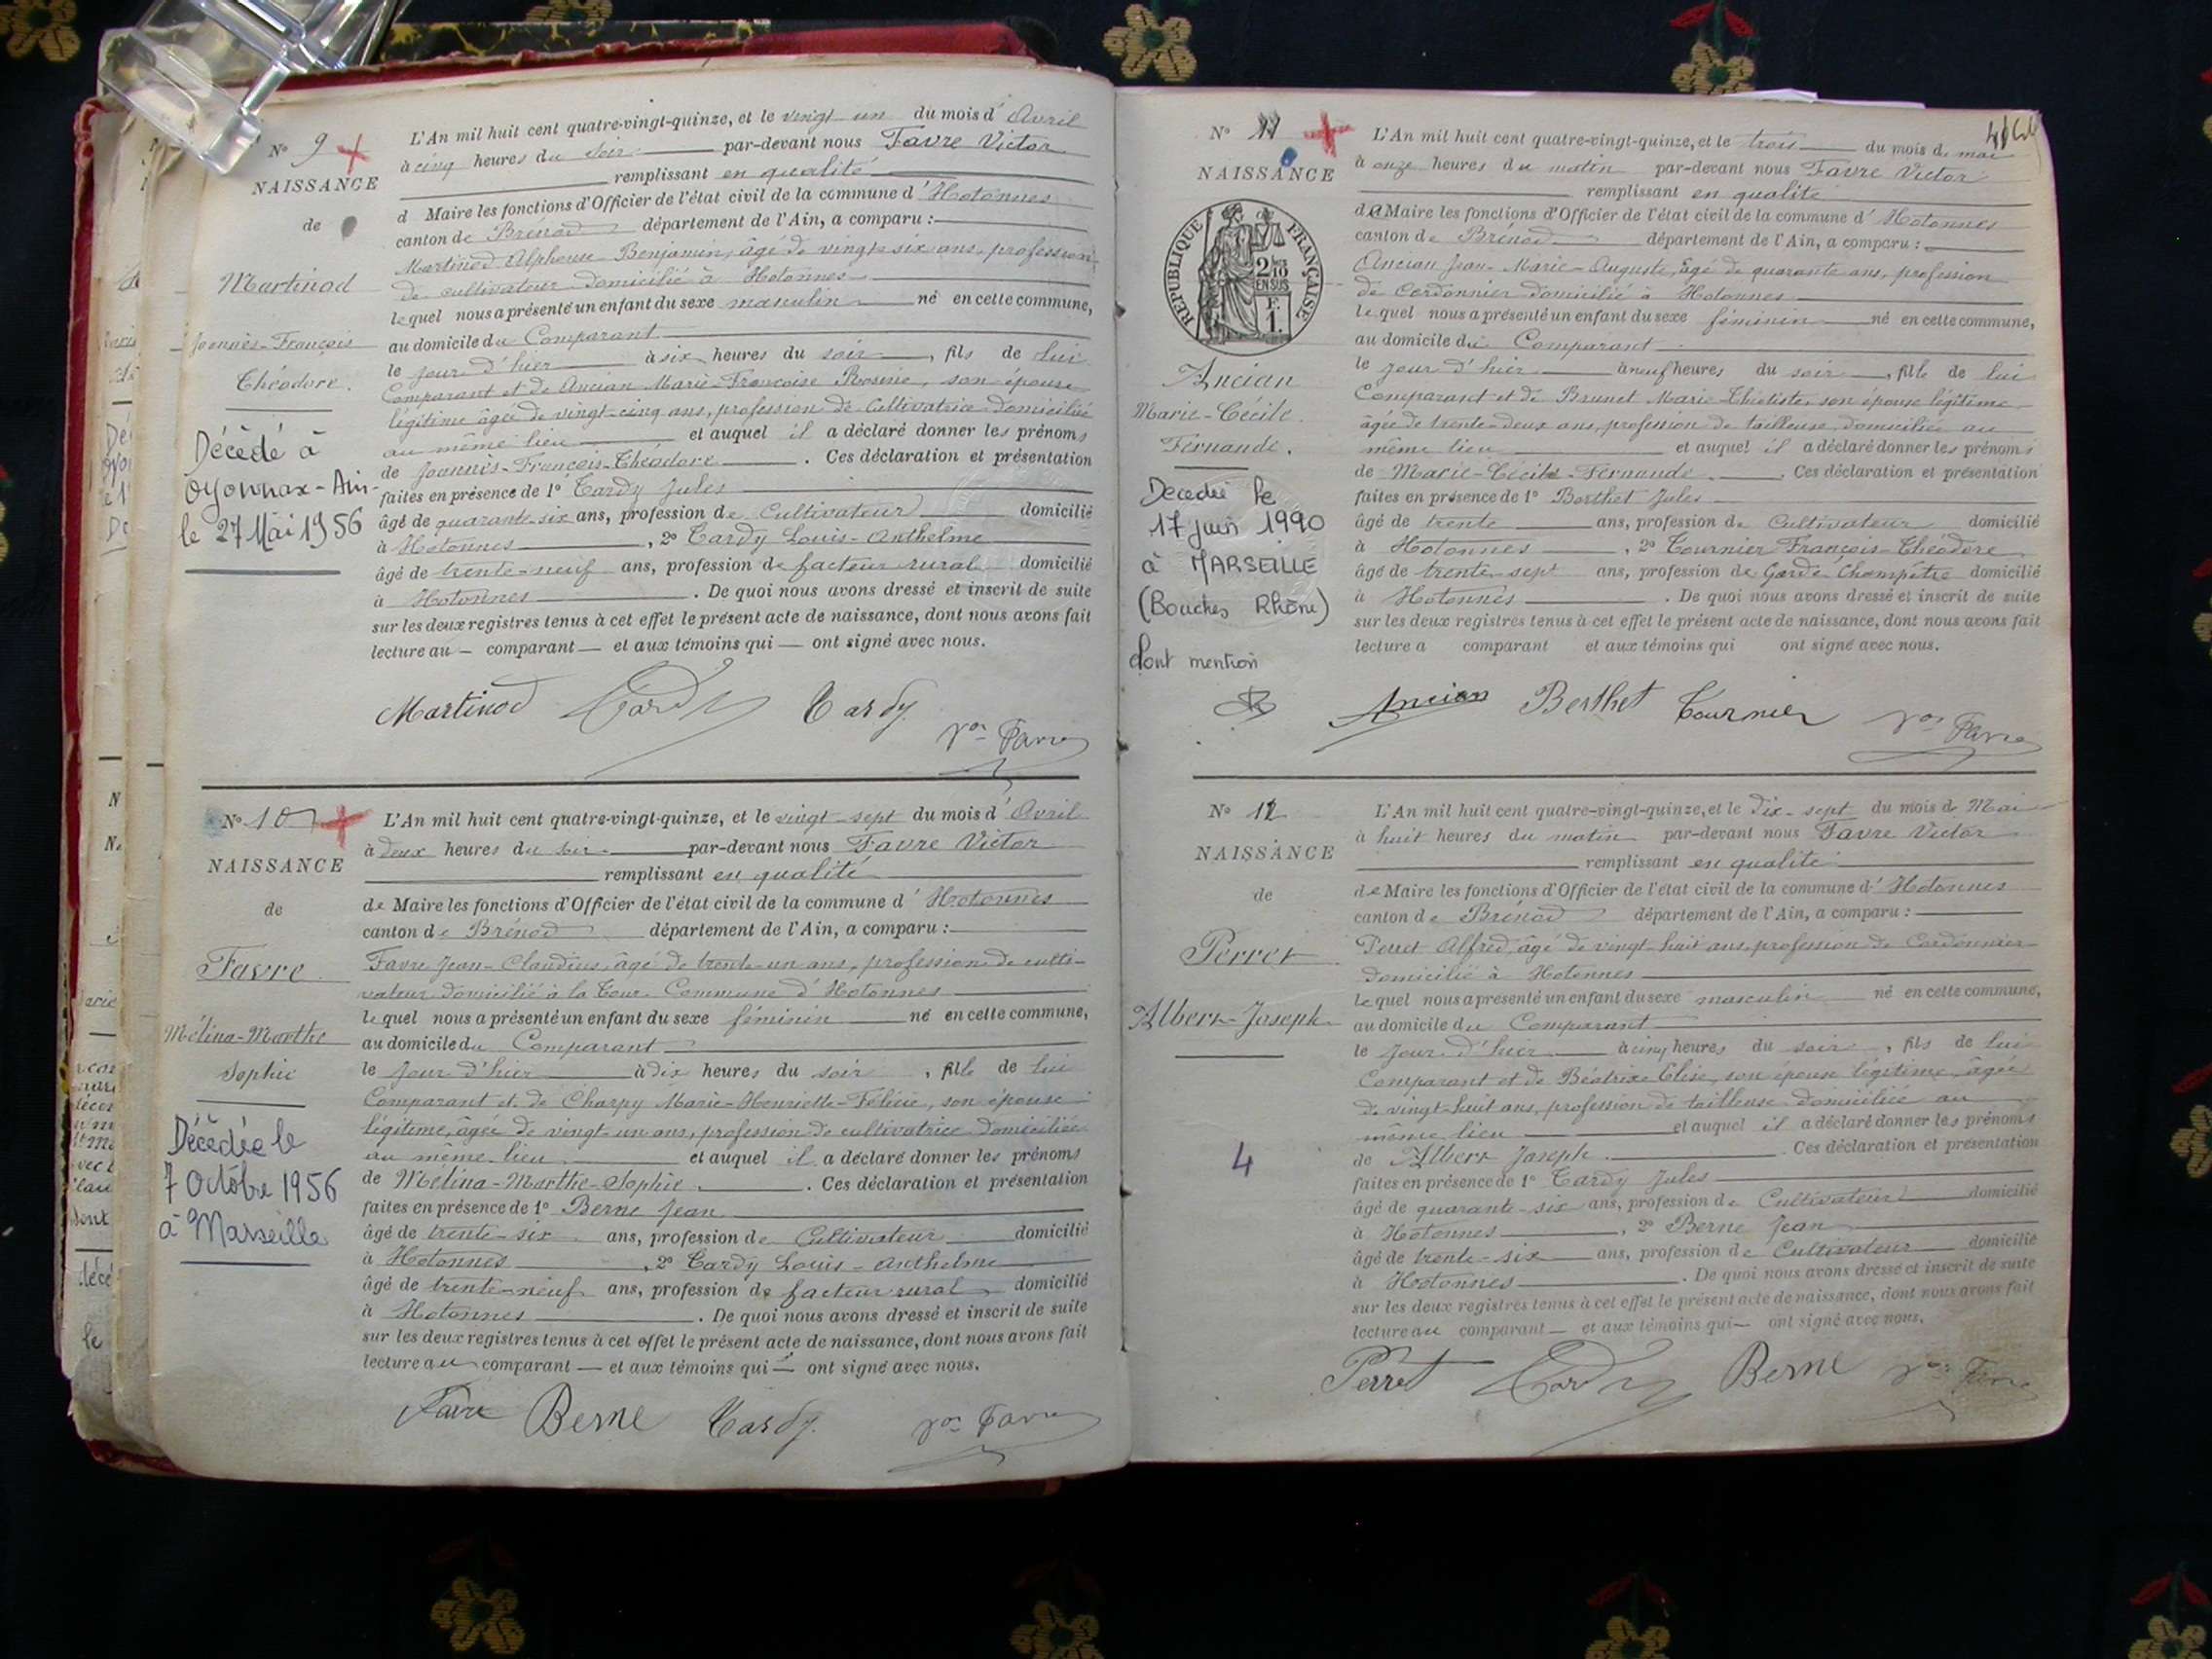 N° 9
NAISSANCE
de
Martinod
Joannès-François
Théodore.
Décédé à
Oyonnax-Ain-
le 27 Mai 1956
L'An mil huit cent quatre-vingt-quinze, et le vingt-un du mois d'Avril
à cinq heures du soir par-devant nous Favre Victor
remplissant en qualité
d Maire les fonctions d'Officier de l'état civil de la commune d'Hotonnes
canton de Brénod département de l'Ain, a comparu :
Martinod Alphonse-Benjamin, âgé de vingt-six ans, profession
de cultivateur domicilié à Hotonnes
lequel nous a présenté un enfant du sexe masculin né en cette commune,
au domicile du Comparant
le jour d'hier à six heures du soir, fils de lui
Comparant et de Ancian Marie-Françoise Rosine, son épouse
légitime âgée de vingt-cinq ans, profession de Cultivatrice domiciliée
au même lieu et auquel il a déclaré donner les prénoms
de Joannès-François-Théodore. Ces déclaration et présentation
faites en présence de 1° Tardy Jules
âgé de quarante-six ans, profession de Cultivateur domicilié
à Hotonnes, 2° Tardy Louis-Anthelme
âgé de trente-neuf ans, profession de facteur rural domicilié
à Hotonnes. De quoi nous avons dressé et inscrit de suite
sur les deux registres tenus à cet effet le présent acte de naissance, dont nous avons fait
lecture au comparant et aux témoins qui ont signé avec nous.
Martinod Tardy Tardy
Vor Favre
N° 10
NAISSANCE
de
Favre
Mélina-Marthe
Sophie
Décédée le
7 Octobre 1956
à Marseille
L'An mil huit cent quatre-vingt-quinze, et le vingt-sept du mois d'Avril
à deux heures du soir par-devant nous Favre Victor
remplissant en qualité
de Maire les fonctions d'Officier de l'état civil de la commune d'Hotonnes
canton de Brénod département de l'Ain, a comparu :
Favre Jean-Claudius, âgé de trente-un ans, profession de culti-
vateur domicilié à la Tour Commune d'Hotonnes
lequel nous a présenté un enfant du sexe féminin né en cette commune,
au domicile du Comparant
le jour d'hier à dix heures du soir, fille de lui
Comparant et de Charpy Marie-Henriette-Félicie, son épouse
légitime, âgée de vingt-un ans, profession de cultivatrice domiciliée
au même lieu et auquel il a déclaré donner les prénoms
de Mélina-Marthe-Sophie. Ces déclaration et présentation
faites en présence de 1° Berne Jean
âgé de trente-six ans, profession de Cultivateur domicilié
à Hotonnes, 2° Tardy Louis-Anthelme
âgé de trente-neuf ans, profession de facteur rural domicilié
à Hotonnes. De quoi nous avons dressé et inscrit de suite
sur les deux registres tenus à cet effet le présent acte de naissance, dont nous avons fait
lecture au comparant et aux témoins qui ont signé avec nous.
Favre Berne Tardy. Vor Favre
N° 11
NAISSANCE
RÉPUBLIQUE FRANÇAISE
2/10
EN SUS
F.
1.
Ancian
Marie-Cécile
Fernande.
Décédée le
17 juin 1990
à MARSEILLE
(Bouches Rhône)
dont mention
L'An mil huit cent quatre-vingt-quinze, et le trois du mois de mai
à onze heures du matin par-devant nous Favre Victor
remplissant en qualité
de Maire les fonctions d'Officier de l'état civil de la commune d'Hotonnes
canton de Brénod département de l'Ain, a comparu :
Ancian Jean-Marie-Auguste, âgé de quarante ans, profession
de Cordonnier domicilié à Hotonnes
lequel nous a présenté un enfant du sexe féminin né en cette commune,
au domicile du Comparant
le jour d'hier à neuf heures du soir, fille de lui
Comparant et de Brunet Marie-Théotiste, son épouse légitime
âgée de trente-deux ans, profession de tailleuse, domiciliée au
même lieu et auquel il a déclaré donner les prénoms
de Marie-Cécile-Fernande. Ces déclaration et présentation
faites en présence de 1° Berthet Jules
âgé de trente ans, profession de Cultivateur domicilié
à Hotonnes, 2° Tournier François-Théodore
âgé de trente-sept ans, profession de Garde Champêtre domicilié
à Hotonnes. De quoi nous avons dressé et inscrit de suite
sur les deux registres tenus à cet effet le présent acte de naissance, dont nous avons fait
lecture a comparant et aux témoins qui ont signé avec nous.
Ancian Berthet Tournier Vor Favre
N° 12
NAISSANCE
de
Perret
Albert-Joseph
4
L'An mil huit cent quatre-vingt-quinze, et le dix-sept du mois de Mai
à huit heures du matin par-devant nous Favre Victor
remplissant en qualité
de Maire les fonctions d'Officier de l'état civil de la commune d'Hotonnes
canton de Brénod département de l'Ain, a comparu :
Perret Alfred, âgé de vingt-huit ans, profession de Cordonnier
domicilié à Hotonnes
lequel nous a présenté un enfant du sexe masculin né en cette commune,
au domicile du Comparant
le jour d'hier à cinq heures du soir, fils de lui
Comparant et de Béatrix Elise, son épouse légitime, âgée
de vingt-huit ans, profession de tailleuse domiciliée au
même lieu et auquel il a déclaré donner les prénoms
de Albert Joseph. Ces déclaration et présentation
faites en présence de 1° Tardy Jules
âgé de quarante-six ans, profession de Cultivateur domicilié
à Hotonnes, 2° Berne Jean
âgé de trente-six ans, profession de Cultivateur domicilié
à Hotonnes. De quoi nous avons dressé et inscrit de suite
sur les deux registres tenus à cet effet le présent acte de naissance, dont nous avons fait
lecture au comparant et aux témoins qui ont signé avec nous.
Perret Tardy Berne Vor Favre